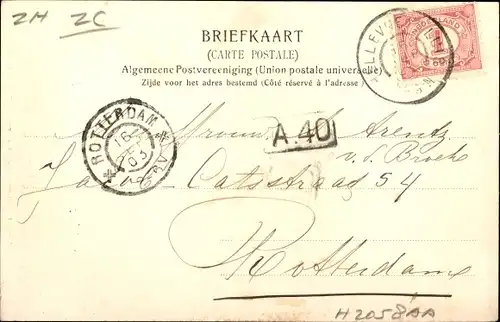 ZH ZC
BRIEFKAART
(CARTE POSTALE)
Algemeene Postvereeniging (Union postale universelle)
Zijde voor het adres bestemd (Côté réservé à l'adresse)
NEDERLAND
ROTTERDAM
16
03
A.40
Mevrouw Arentz
v.d. Broek
Jacob Catsstraat 54
Rotterdam
H2058AA